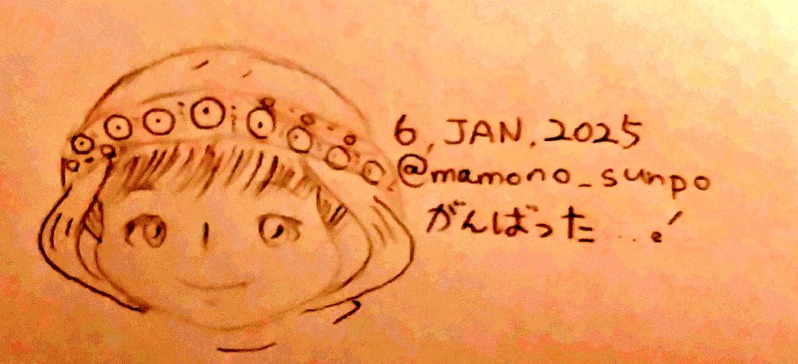 6, JAN, 2025
@mamono_sunpo
がんばった...!